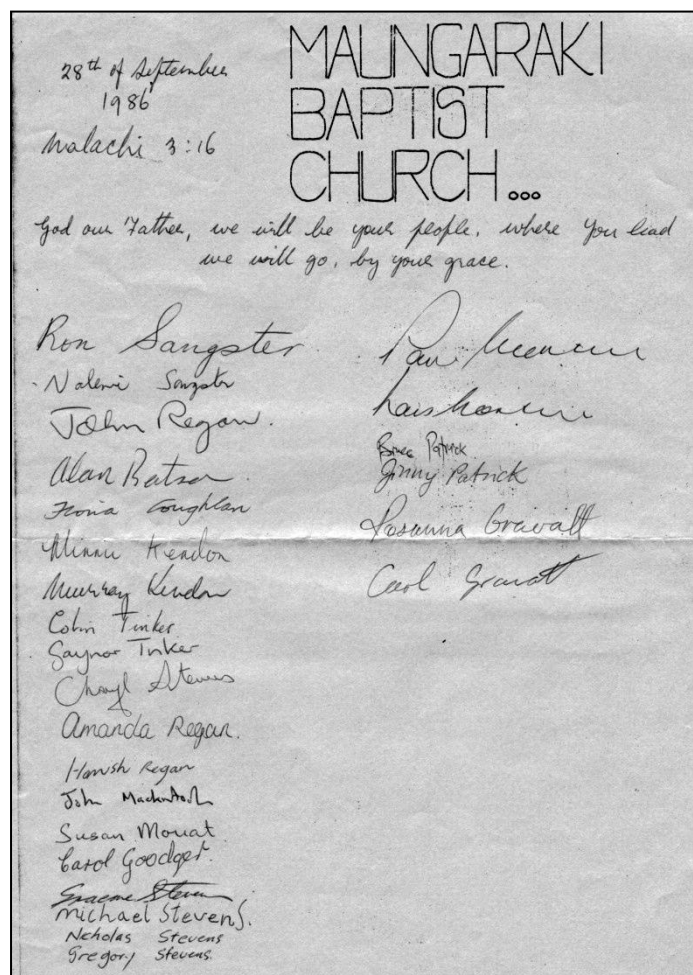 28th of September
1986
Malachi 3:16
MAUNGARAKI
BAPTIST
CHURCH...
God our Father, we will be your people, where You lead
we will go, by your grace.
Ron Sangster
Sangster
John Regan.
Alan Batson
Fiona Coughlan
Minnie Kendon
Murray Kendon
Colin Tinker
Gaynor Tinker
Cheryl Stevens
Amanda Regan.
Hamish Regan
John Mackintosh
Susan Mouat
Carol Goodger.
Graeme Steven
Michael Stevens.
Nicholas Stevens
Gregory Stevens
Paul
Lois
Bruce Patrick
Jinny Patrick
Rosanna Gravatt
Carl Gravatt